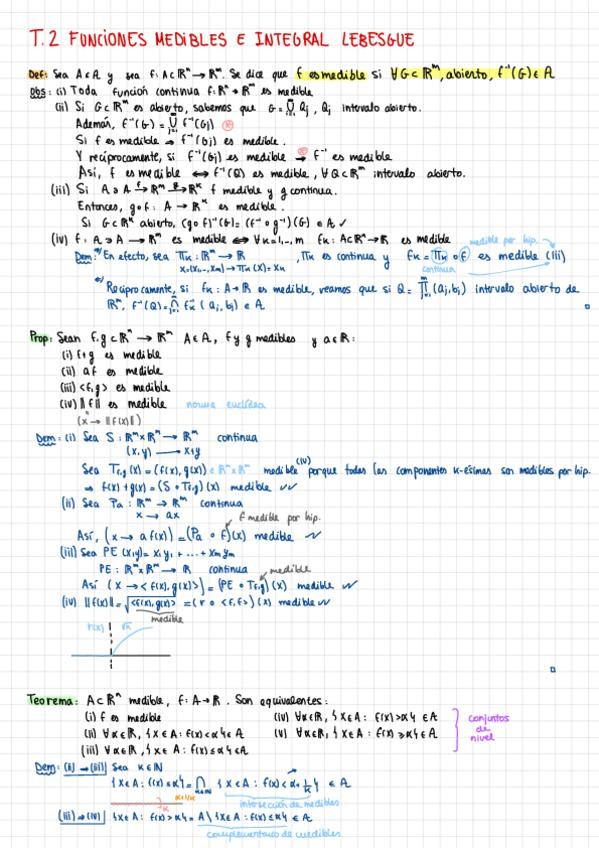 T.2 FUNCIONES MEDIBLES E INTEGRAL LEBESGUE
Def: Sea A∈𝒜 y sea f: A⊂ℝⁿ → ℝᵐ. Se dice que f es medible si ∀G⊂ℝᵐ, abierto, f⁻¹(G) ∈ 𝒜
Obs: (i) Toda función continua f: ℝⁿ → ℝᵐ es medible
(ii) Si G⊂ℝᵐ es abierto, sabemos que G = ⋃ Qj, Qj intervalo abierto.
Además, f⁻¹(G) = ⋃ f⁻¹(Gj) (*)
Si f es medible → f⁻¹(Gj) es medible.
Y recíprocamente, si f⁻¹(Gj) es medible →(*) f⁻¹ es medible
Así, f es medible ⟺ f⁻¹(Q) es medible, ∀Q⊂ℝᵐ intervalo abierto.
(iii) Si A∋A →f ℝᵐ →g ℝᵏ f medible y g continua.
Entonces, g∘f: A → ℝᵏ es medible.
Si G⊂ℝᵏ abierto, (g∘f)⁻¹(G) = (f⁻¹∘g⁻¹)(G) ∈ A ✓
(iv) f: A∋A → ℝᵐ es medible ⟺ ∀k=1,..,m fk: A⊂ℝⁿ → ℝ es medible
medible por hip.
Dem: ⇒ En efecto, sea Πk: ℝᵐ → ℝ, Πk es continua y fk = Πk ∘ f es medible (iii)
x=(x₁,..,xm) → Πk(x) = xk
continua
⇐ Recíprocamente, si fk: A → ℝ es medible, veamos que si Q = ∏(aj,bj) intervalo abierto de
ℝᵐ, f⁻¹(Q) = ⋂ fk⁻¹(aj,bj) ∈ A
Prop: Sean f,g ⊂ ℝⁿ → ℝᵐ A∈𝒜, f y g medibles y a∈ℝ:
(i) f+g es medible
(ii) af es medible
(iii) <f,g> es medible
(iv) ‖f‖ es medible norma euclídea
(x → ‖f(x)‖)
Dem: (i) Sea S: ℝᵐ×ℝᵐ → ℝᵐ continua
(x,y) → x+y
Sea Tf,g(x) = (f(x), g(x)) ∈ ℝᵐ×ℝᵐ medible (iv) porque todas las componentes k-ésimas son medibles por hip.
⇒ f(x)+g(x) = (S∘Tf,g)(x) medible ✓✓
(ii) Sea Pa: ℝᵐ → ℝᵐ continua
x → ax
f medible por hip.
Así, (x → a f(x)) = (Pa ∘ f)(x) medible ✓✓
(iii) Sea PE(x,y) = x₁y₁ + ... + xm ym
PE: ℝᵐ×ℝᵐ → ℝ continua medible
Así (x → <f(x),g(x)>) = (PE ∘ Tf,g)(x) medible ✓✓
(iv) ‖f(x)‖ = √<f(x),g(x)> = (r ∘ <f,f>)(x) medible ✓✓
medible
r(x) √x
Teorema: A⊂ℝⁿ medible, f: A→ℝ. Son equivalentes:
(i) f es medible (iv) ∀α∈ℝ, {x∈A: f(x)>α} ∈ A
(ii) ∀α∈ℝ, {x∈A: f(x)<α} ∈ A (v) ∀α∈ℝ, {x∈A: f(x)≥α} ∈ A
(iii) ∀α∈ℝ, {x∈A: f(x)≤α} ∈ A
conjuntos
de
nivel
Dem: (ii)→(iii) Sea k∈ℕ
{x∈A: f(x)≤α} = ⋂ {x∈A: f(x)<α+1/k} ∈ A
α α+1/k
intersección de medibles
(iii)→(iv) {x∈A: f(x)>α} = A \ {x∈A: f(x)≤α} ∈ A
complementario de medibles